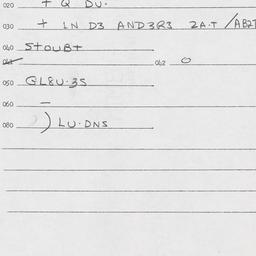 020 + Q DU.
030 + LN D3 AND3R3 2A.T /AB2T
040 STOUB+
041 042 0
050 GL8U.3S
060 –
080 ) LU.DNS